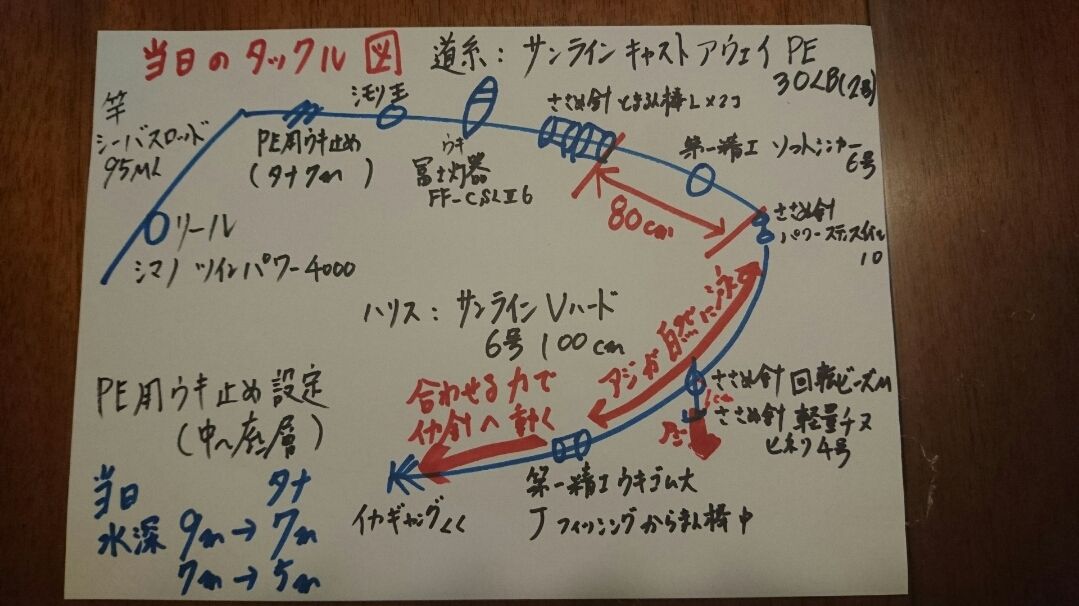 当日のタックル図
道糸：サンラインキャストアウェイPE
30LB(2号)
竿
シーバスロッド
95ML
PE用ウキ止め
(タナ7m)
シモリ玉
ウキ
冨士灯器
FF-CSLⅡ6
ささめ針 とまるん棒L×2コ
第一精工 ソフトシンカー
6号
80cm
ささめ針
パワーステンスイベル
10
リール
シマノ ツインパワー4000
ハリス：サンラインVハード
6号100cm
アジが自然に泳ぐ
ささめ針 回転ビーズM
1cm
ささめ針 軽量チヌ
ヒネリ4号
アジ
合わせる力で
イカ針へ動く
第一精工ウキゴム大
Jフィッシングからまん棒中
イカギャング
PE用ウキ止め設定
(中〜底層)
当日 タナ
水深 9m→7m
7m→5m